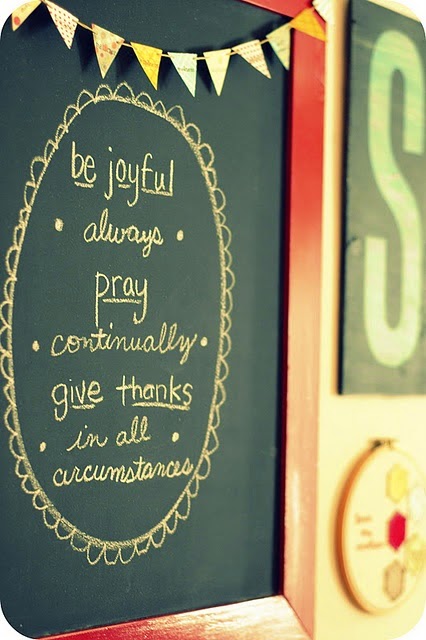 be joyful
always
pray
continually
give thanks
in all
circumstances
S